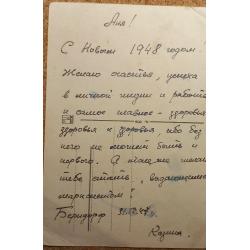 Аня!
С Новым 1948 годом.
Желаю счастья, успеха
в личной жизни и работе
и самое главное - здоровья
здоровья и здоровья, ибо без
него не может быть и
первого. А также желаю
тебе стать
марксистом!
Берндорф 30.12.47